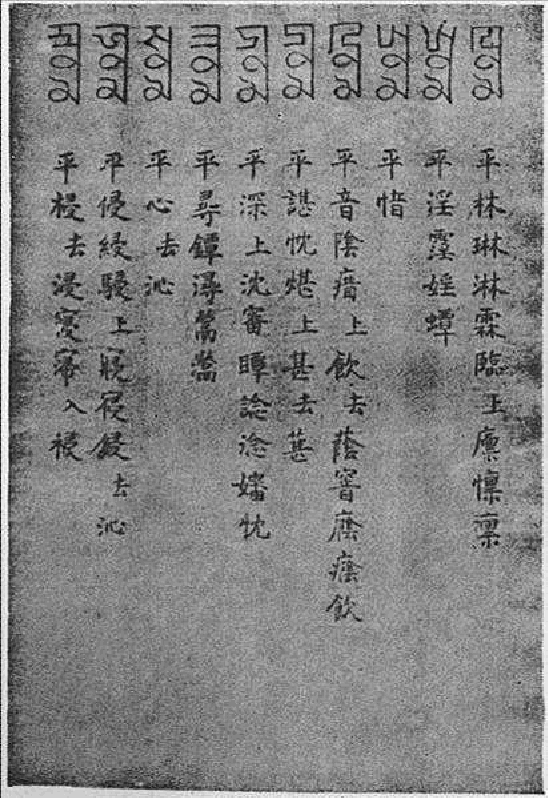 ꡙꡞꡏ 平林琳淋霖臨上廩懍凜
平淫霪婬蟫
平愔
ꡖꡞꡏ 平音陰瘖上飲去蔭窨廕飲
平諶忱煁上甚去葚
平深上沈審瞫諗淰嬸忱
ꡕꡞꡏ 平尋鐔潯鬵
ꡛꡞꡏ 平心去沁
ꡑꡞꡏ 平侵綅駸上寑寢鋟去沁
ꡒꡞꡏ 平祲去浸入祲